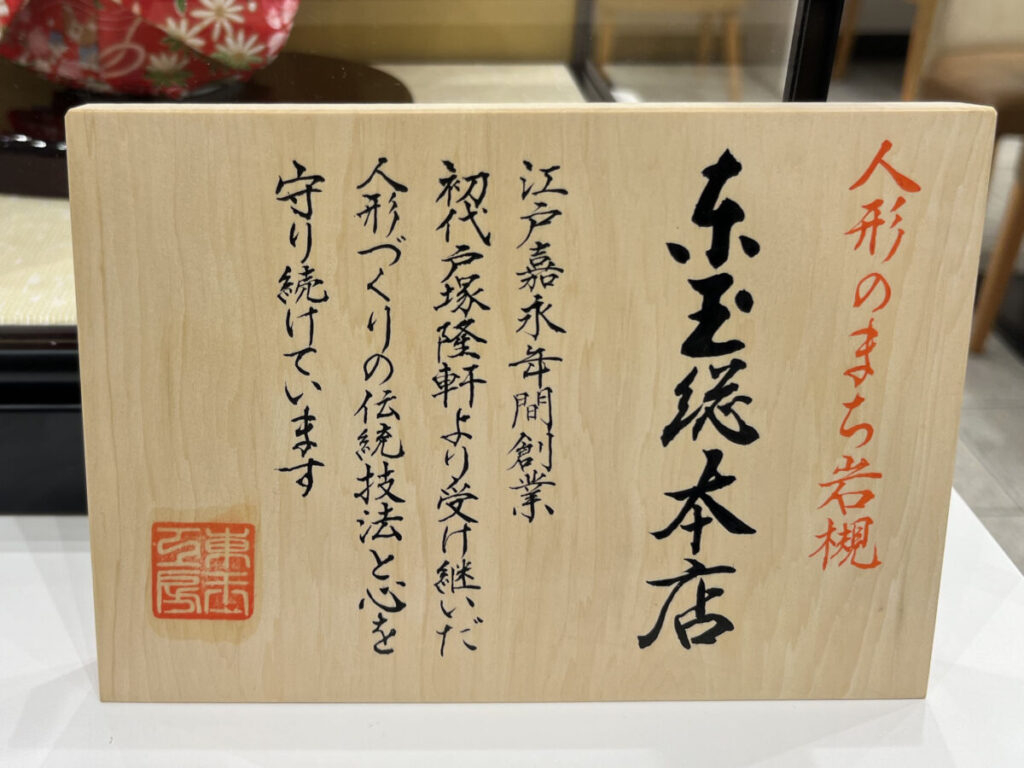 人形のまち岩槻
东玉総本店
江戸嘉永年間創業
初代戸塚隆軒より受け継いだ
人形づくりの伝統技法と心を
守り続けています
東玉